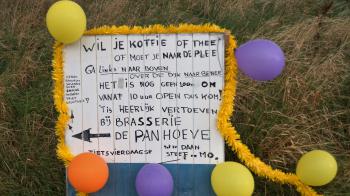 WIL JE KOFFIE OF THEE
OF MOET JE NAAR DE PLEE
GA links NAAR BOVEN
OVER DE DIJK NAAR BENEE
HET IS NOG GEEN 100m OM
VANAF 10 UUR OPEN DUS KOM!
'TIS HEERLIJK VERTOEVEN
BIJ BRASSERIE
DE PANHOEVE
FIETSVIERDAAGSE
DAAN
STEEF
MO